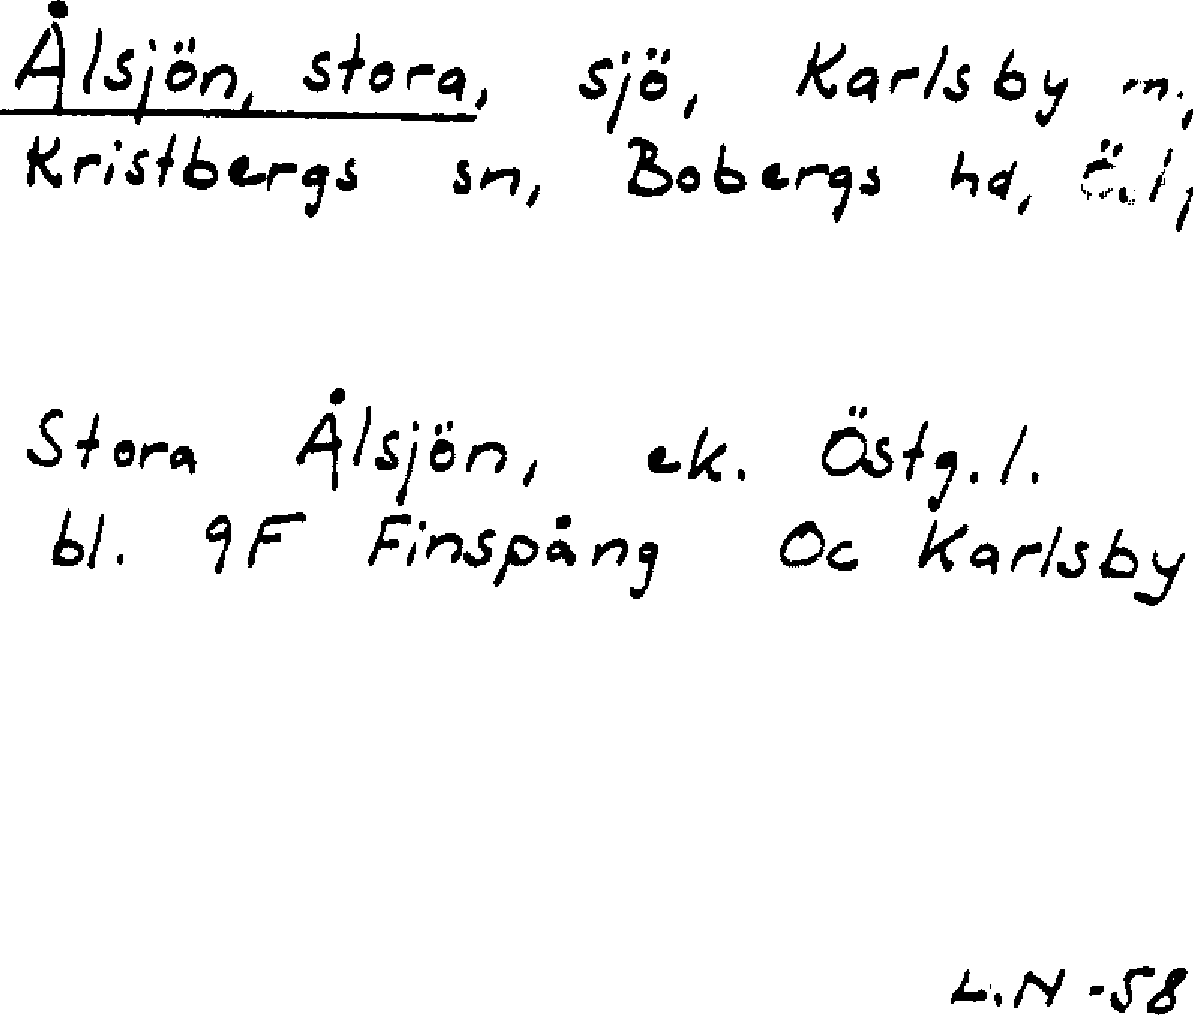 Ålsjön, stora, sjö, Karlsby m.,
Kristbergs sn, Bobergs hd, Ö.l,
Stora Ålsjön, ek. Östg.l.
bl. 9F Finspång 0c Karlsby
L.N -58